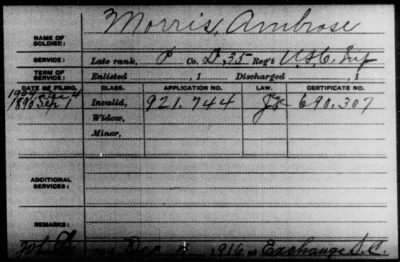 Morris, Ambrose
NAME OF SOLDIER:
SERVICE: Late rank, P Co. D, 35 Reg't U.S.C. Inf
TERM OF SERVICE: Enlisted , 1 Discharged , 1
DATE OF FILING. CLASS. APPLICATION NO. LAW. CERTIFICATE NO.
1890 Sep 1 Invalid, 921.744 690.307
Widow,
Minor,
ADDITIONAL SERVICES:
REMARKS:
1916 at Exchange S.C.